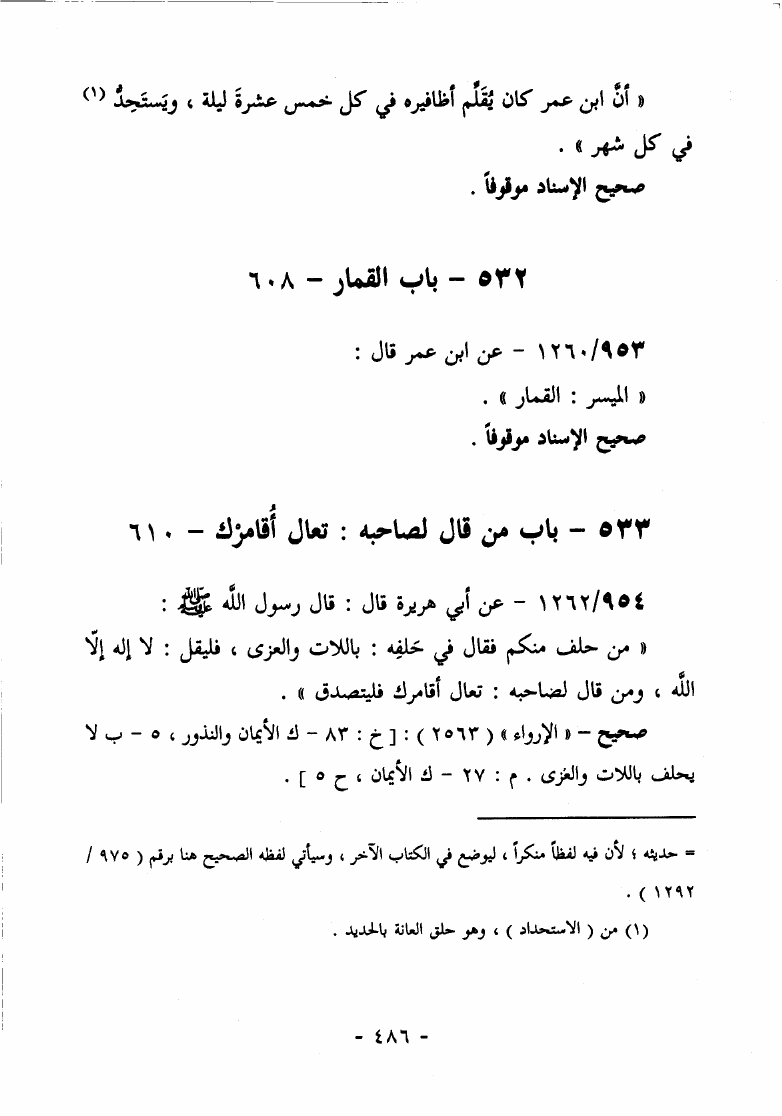 « أنَّ ابن عمر كان يُقَلِّم أظافيره في كل خمس عشرةَ ليلة ، ويَستَحِدُّ (١)
في كل شهر » .
صحيح الإسناد موقوفاً .
٥٣٢ – باب القمار – ٦٠٨
١٢٦٠/٩٥٣ – عن ابن عمر قال :
« الميسر : القمار » .
صحيح الإسناد موقوفاً .
٥٣٣ – باب من قال لصاحبه : تعال أُقامرْك – ٦١٠
١٢٦٢/٩٥٤ – عن أبي هريرة قال : قال رسول الله ﷺ :
« من حلف منكم فقال في حَلفِه : باللات والعزى ، فليقل : لا إله إلّا
الله ، ومن قال لصاحبه : تعال أقامرك فليتصدق » .
صحيح – « الإرواء » ( ٢٥٦٣ ) : [ خ : ٨٣ – ك الأيمان والنذور ، ٥ – ب لا
يحلف باللات والعزى . م : ٢٧ – ك الأيمان ، ح ٥ ] .
= حديثه ؛ لأن فيه لفظاً منكراً ، ليوضع في الكتاب الآخر ، وسيأتي لفظه الصحيح هنا برقم ( ٩٧٥ /
١٢٩٢ ) .
(١) من ( الاستحداد ) ، وهو حلق العانة بالحديد .
- ٤٨٦ -